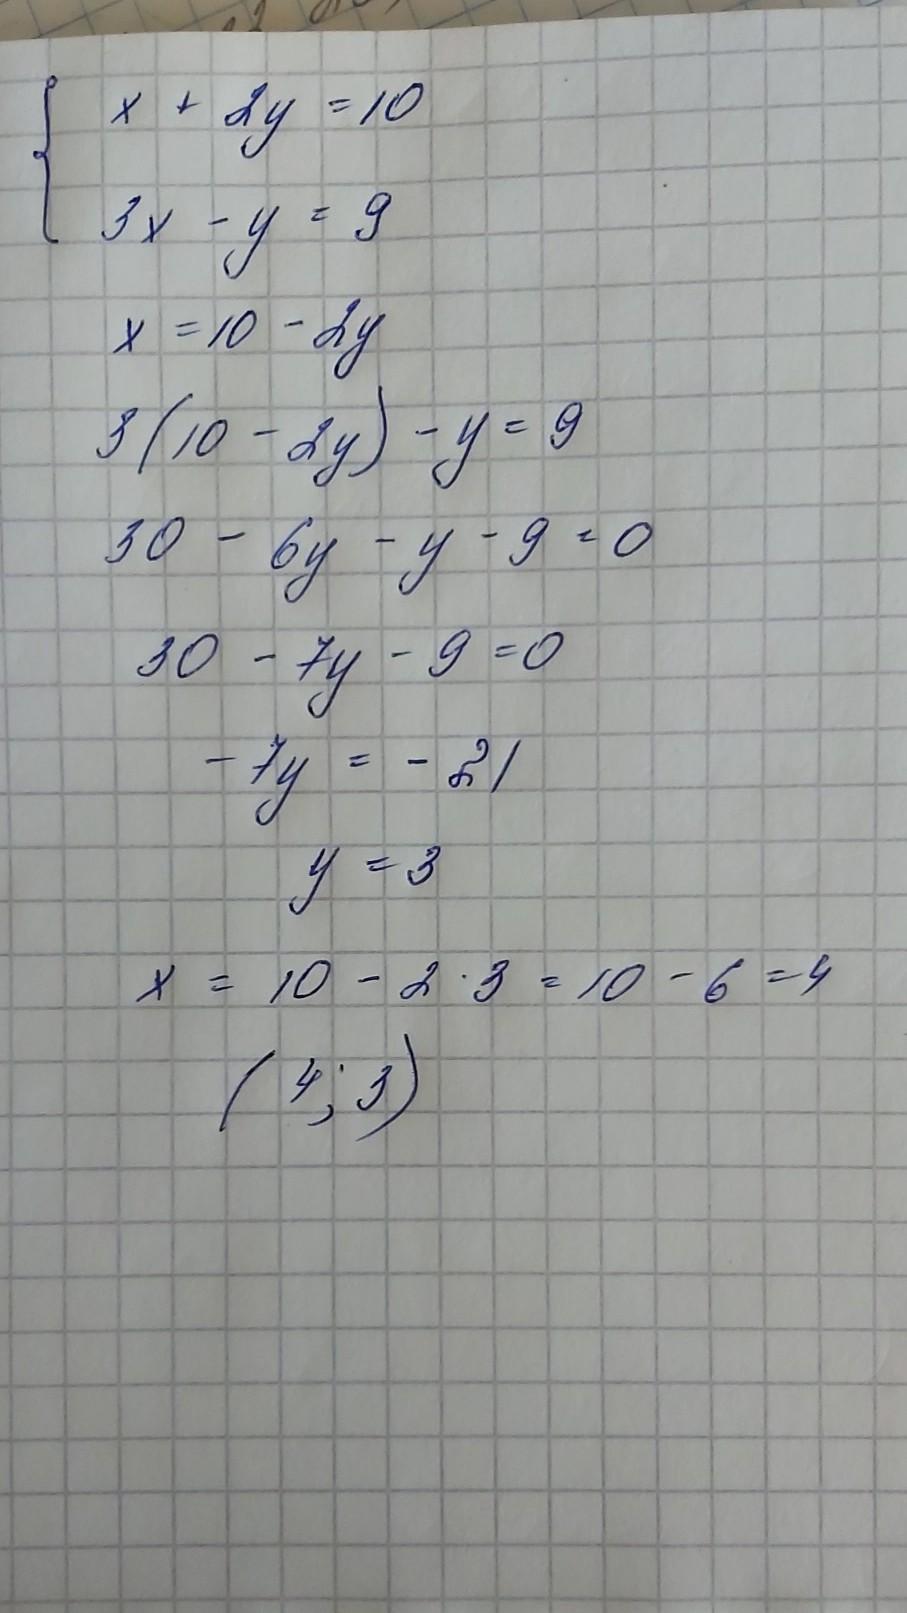 { x + 2y = 10
3x - y = 9
x = 10 - 2y
3(10 - 2y) - y = 9
30 - 6y - y - 9 = 0
30 - 7y - 9 = 0
-7y = -21
y = 3
x = 10 - 2·3 = 10 - 6 = 4
(4; 3)